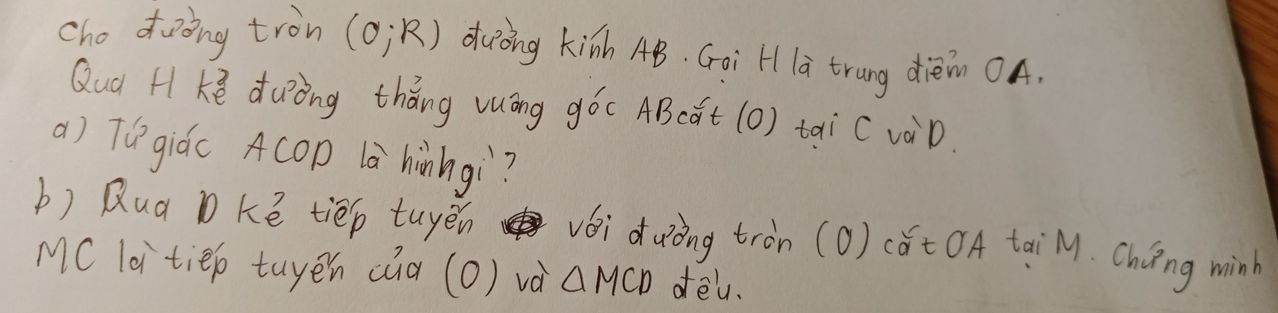 Cho đường tròn (O;R) đường kính AB. Gọi H là trung điểm OA.
Qua H kẻ đường thẳng vuông góc AB cắt (O) tại C và D.
a) Tứ giác ACOD là hình gì?
b) Qua D kẻ tiếp tuyến với đường tròn (O) cắt OA tại M. Chứng minh
MC là tiếp tuyến của (O) và ΔMCD đều.